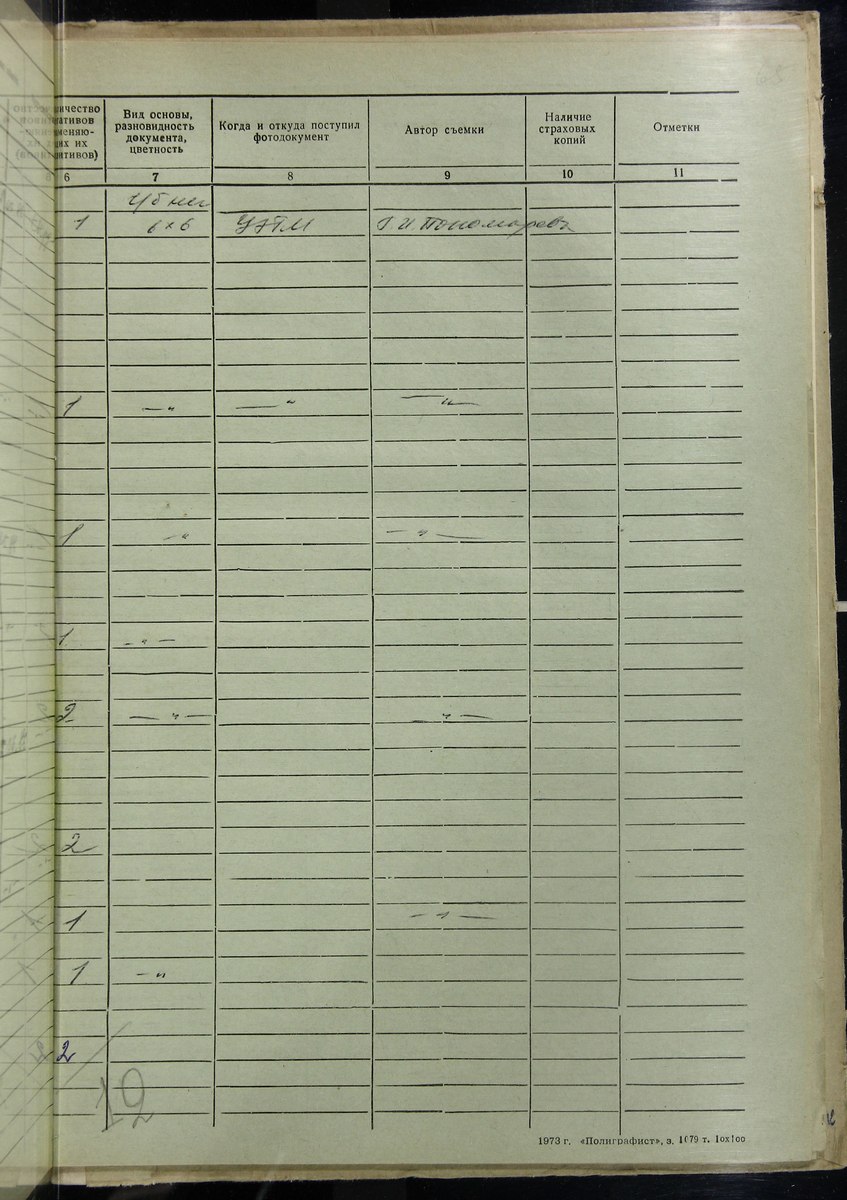 ичество
ативов
меняю-
щих их
итивов)
Вид основы,
разновидность
документа,
цветность
Когда и откуда поступил
фотодокумент
Автор съемки
Наличие
страховых
копий
Отметки
6 7 8 9 10 11
Чб нег
1 6×6 УЭТМ И Пономарев
1 —"— —"— —"—
1 —"— —"—
1 —"—
2 —"— —"—
2
1 —"—
1 —"—
2
12
1973 г. «Полиграфист», з.